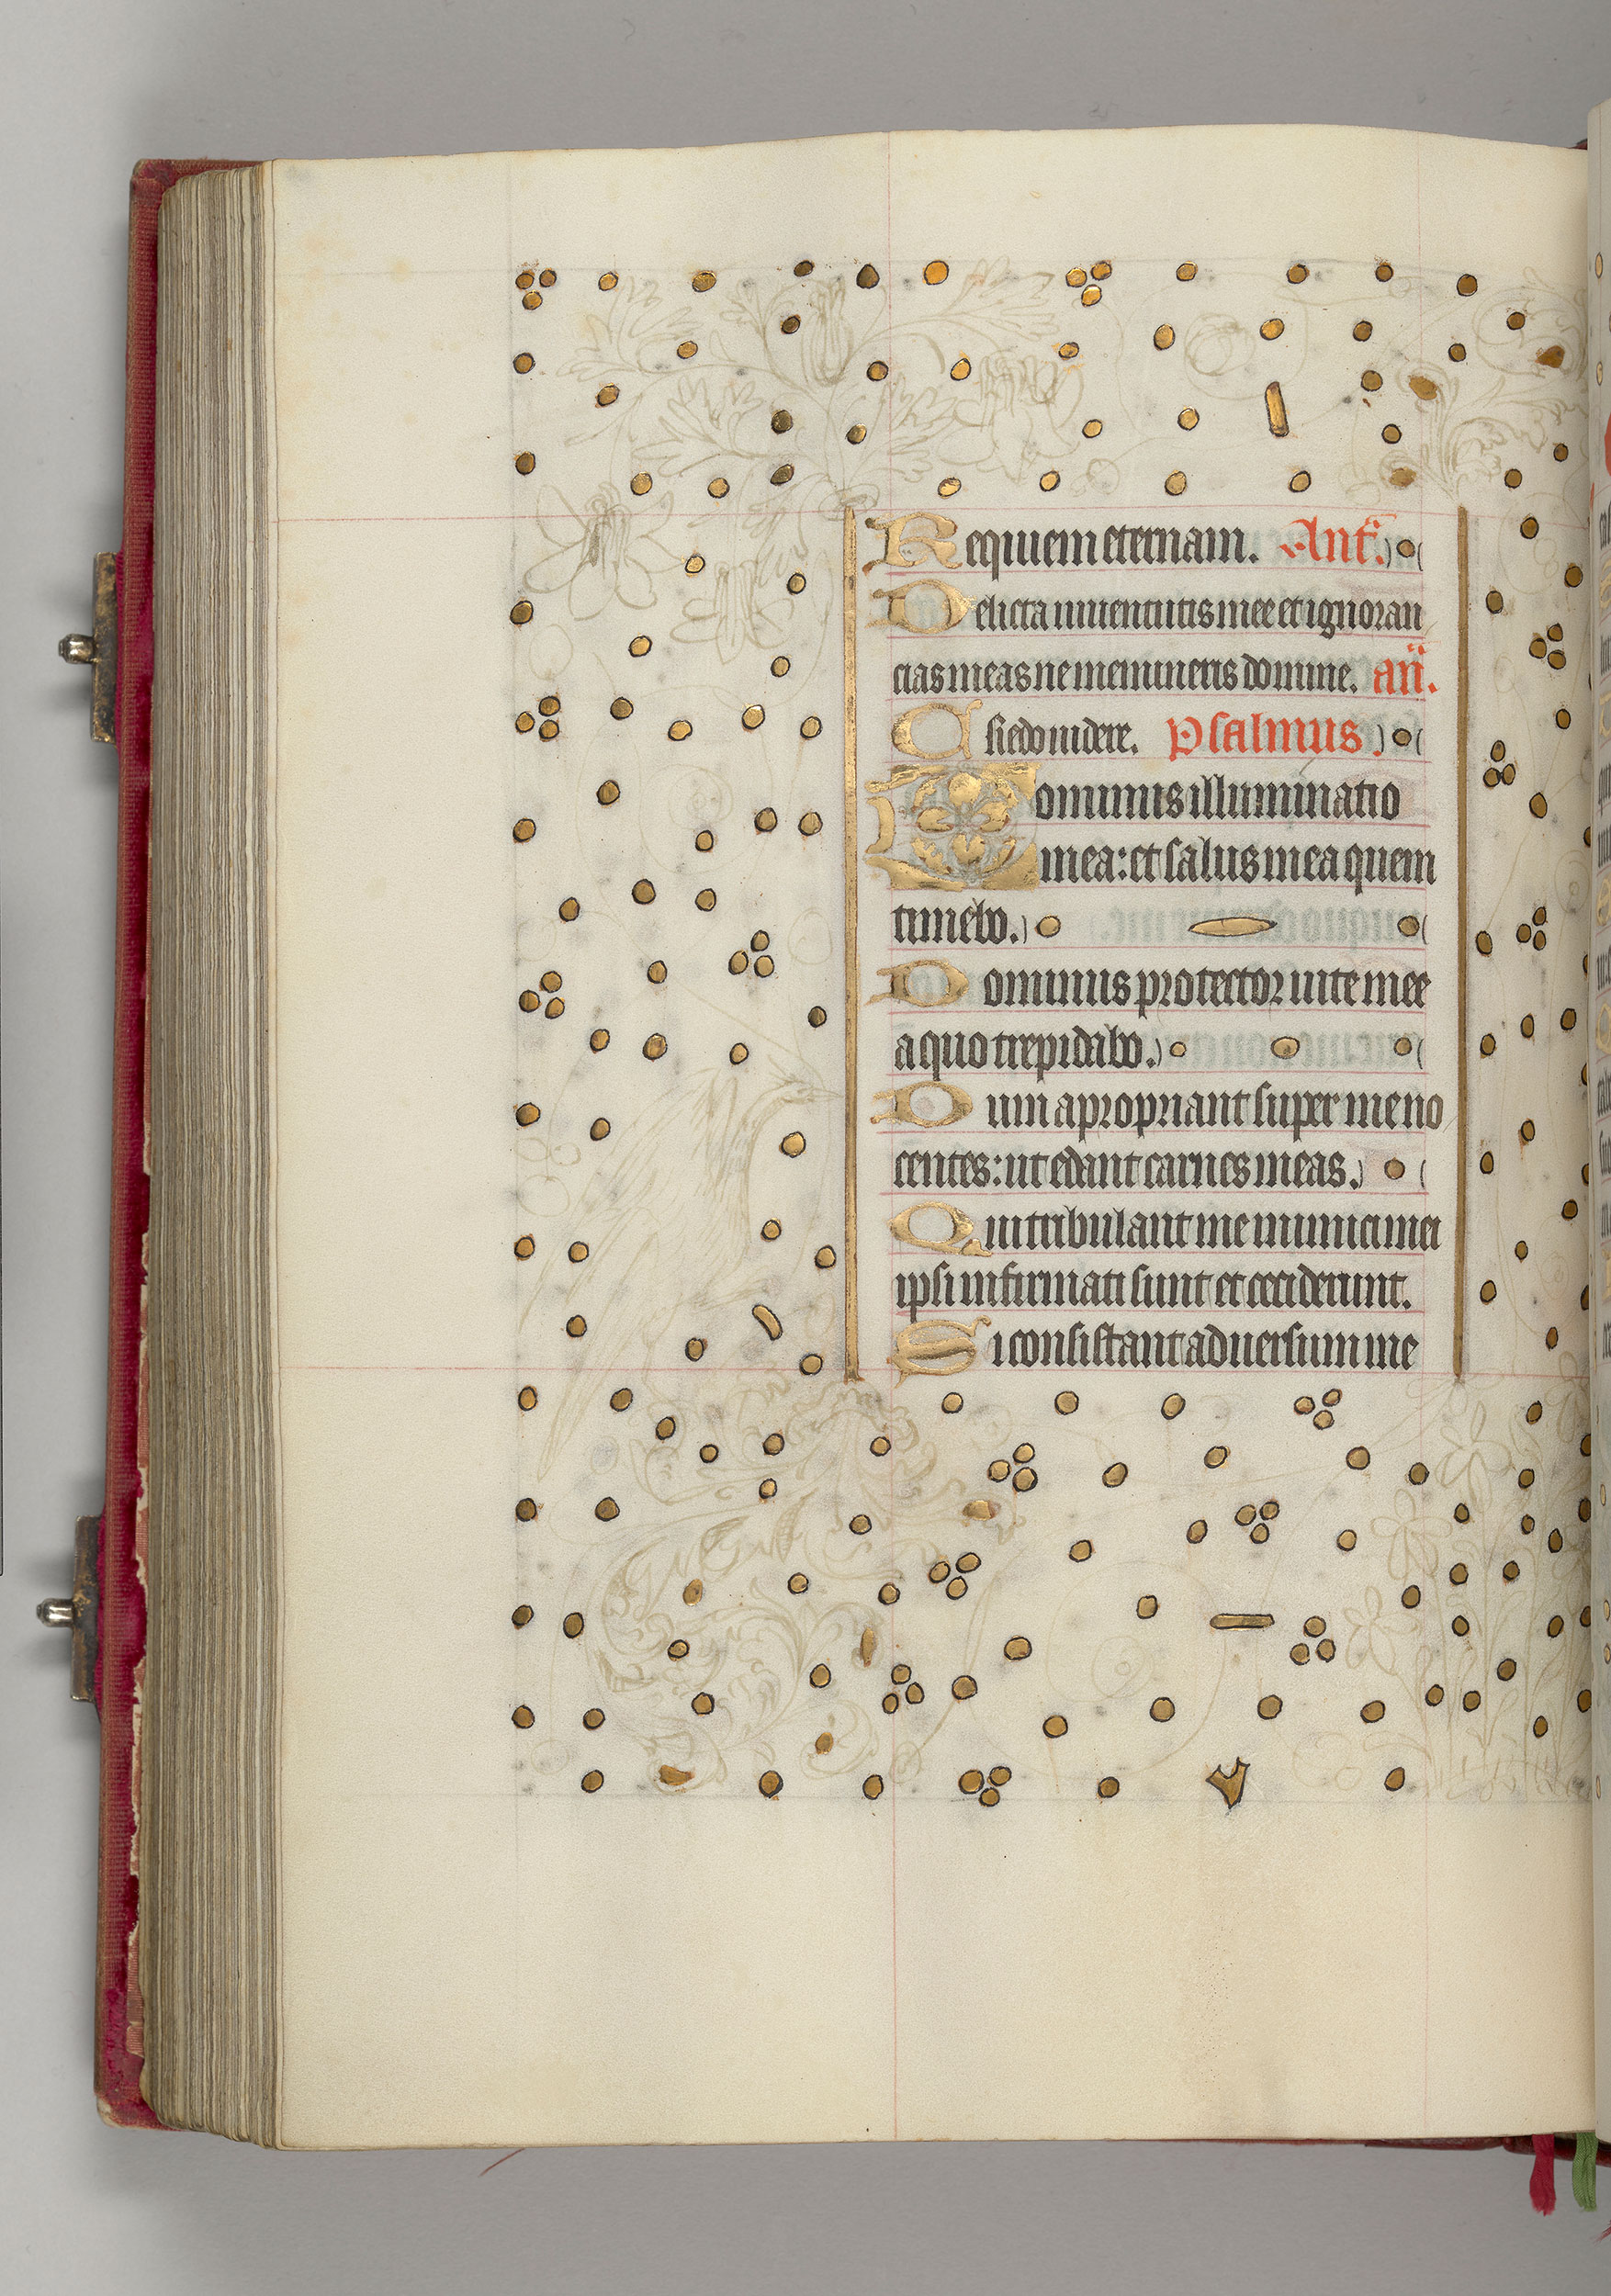 Requiem eternam. Ant̃.
Delicta iuuentutis mee et ignoran
cias meas ne memineris domine. an̄.
Credo uidere. Psalmus.
Dominus illuminatio
mea: et salus mea quem
timebo.
Dominus protector uite mee
a quo trepidabo.
Dum apropriant super me no
centes: ut edant carnes meas.
Qui tribulant me inimici mei
ipsi infirmati sunt et ceciderunt.
Si consistant aduersum me